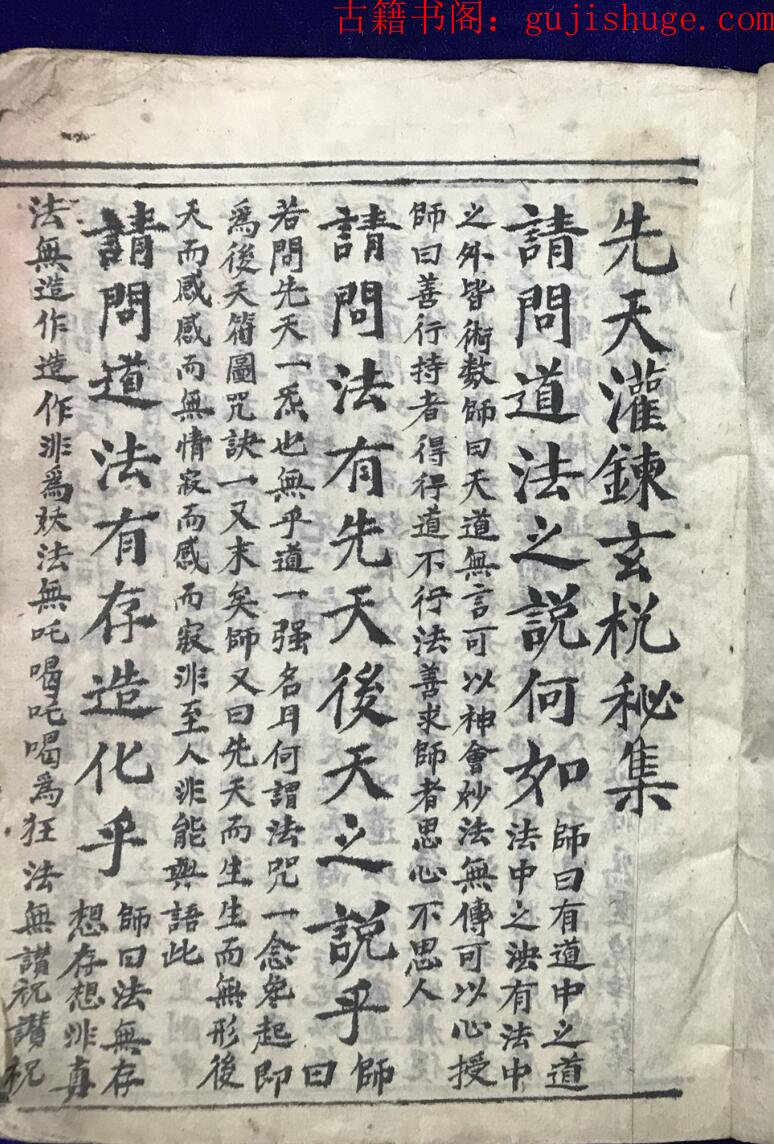 古籍书阁：gujishuge.com
先天灌鍊玄梲秘集
請問道法之説何如
師曰有道中之道
法中之法有法中
之外皆術数師曰天道無言可以神會妙法無傳可以心授
師曰善行持者得得道不行法善求師者思心不思人
請問法有先天後天之説乎
師
曰
若問先天一炁也無乎道一强名耳何謂法咒一念纔起即
爲後天符圖咒訣一又末矣師又曰先天而生生而無形後
天而感感而無情寂而感而寂非至人非能與語此
請問道法有存造化乎
師曰法無存
想存想非真
法無造作造作非爲妖法無吒喝吒喝爲狂法無讃祝讃祝